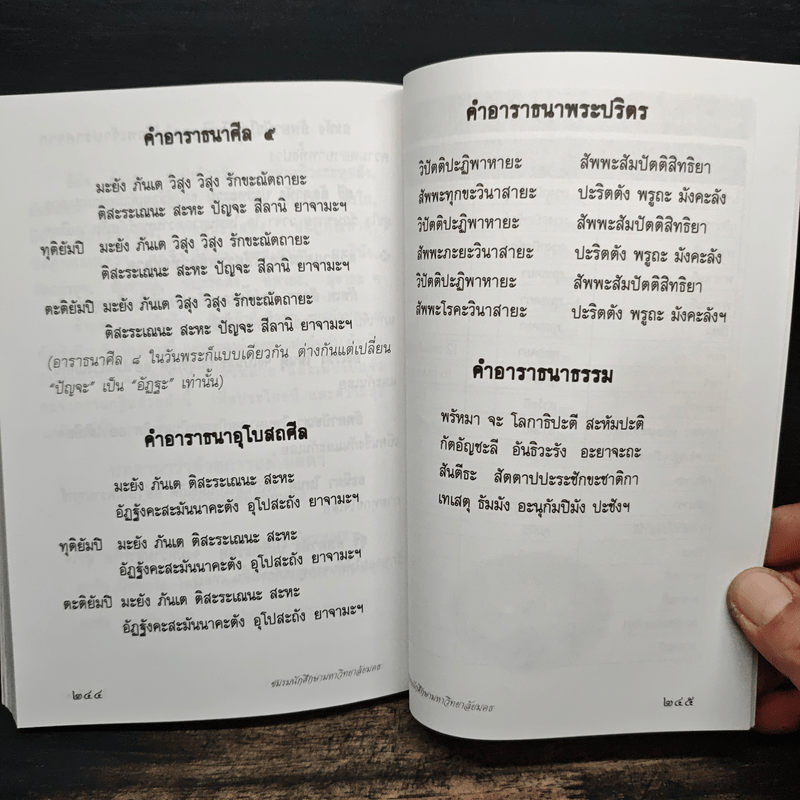 คำอาราธนาศีล ๕
มะยัง ภันเต วิสุง วิสุง รักขะณัตถายะ
ติสะระเณนะ สะหะ ปัญจะ สีลานิ ยาจามะฯ
ทุติยัมปิ มะยัง ภันเต วิสุง วิสุง รักขะณัตถายะ
ติสะระเณนะ สะหะ ปัญจะ สีลานิ ยาจามะฯ
ตะติยัมปิ มะยัง ภันเต วิสุง วิสุง รักขะณัตถายะ
ติสะระเณนะ สะหะ ปัญจะ สีลานิ ยาจามะฯ
(อาราธนาศีล ๘ ในวันพระก็แบบเดียวกัน ต่างกันแต่เปลี่ยน
“ปัญจะ” เป็น “อัฏฐะ” เท่านั้น)
คำอาราธนาอุโบสถศีล
มะยัง ภันเต ติสะระเณนะ สะหะ
อัฏฐังคะสะมันนาคะตัง อุโปสะถัง ยาจามะฯ
ทุติยัมปิ มะยัง ภันเต ติสะระเณนะ สะหะ
อัฏฐังคะสะมันนาคะตัง อุโปสะถัง ยาจามะฯ
ตะติยัมปิ มะยัง ภันเต ติสะระเณนะ สะหะ
อัฏฐังคะสะมันนาคะตัง อุโปสะถัง ยาจามะฯ
๒๔๔
ชมรมนักศึกษามหาวิทยาลัยมคธ
คำอาราธนาพระปริตร
วิปัตติปะฏิพาหายะ สัพพะสัมปัตติสิทธิยา
สัพพะทุกขะวินาสายะ ปะริตตัง พรูถะ มังคะลัง
วิปัตติปะฏิพาหายะ สัพพะสัมปัตติสิทธิยา
สัพพะภะยะวินาสายะ ปะริตตัง พรูถะ มังคะลัง
วิปัตติปะฏิพาหายะ สัพพะสัมปัตติสิทธิยา
สัพพะโรคะวินาสายะ ปะริตตัง พรูถะ มังคะลังฯ
คำอาราธนาธรรม
พรัหมา จะ โลกาธิปะตี สะหัมปะติ
กัตอัญชะลี อันธิวะรัง อะยาจะถะ
สันตีธะ สัตตาปประะชักขะชาติกา
เทเสตุ ธัมมัง อะนุกัมปิมัง ปะชังฯ
นักศึกษามหาวิทยาลัยมคธ
๒๔๕